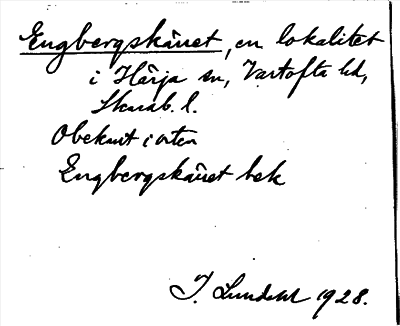 Engbergskäret, en lokalitet
i Härja sn, Vartofta hd,
Skarab. l.
Obekant i orten
Engbergskäret bek
J. Lundahl 1928.